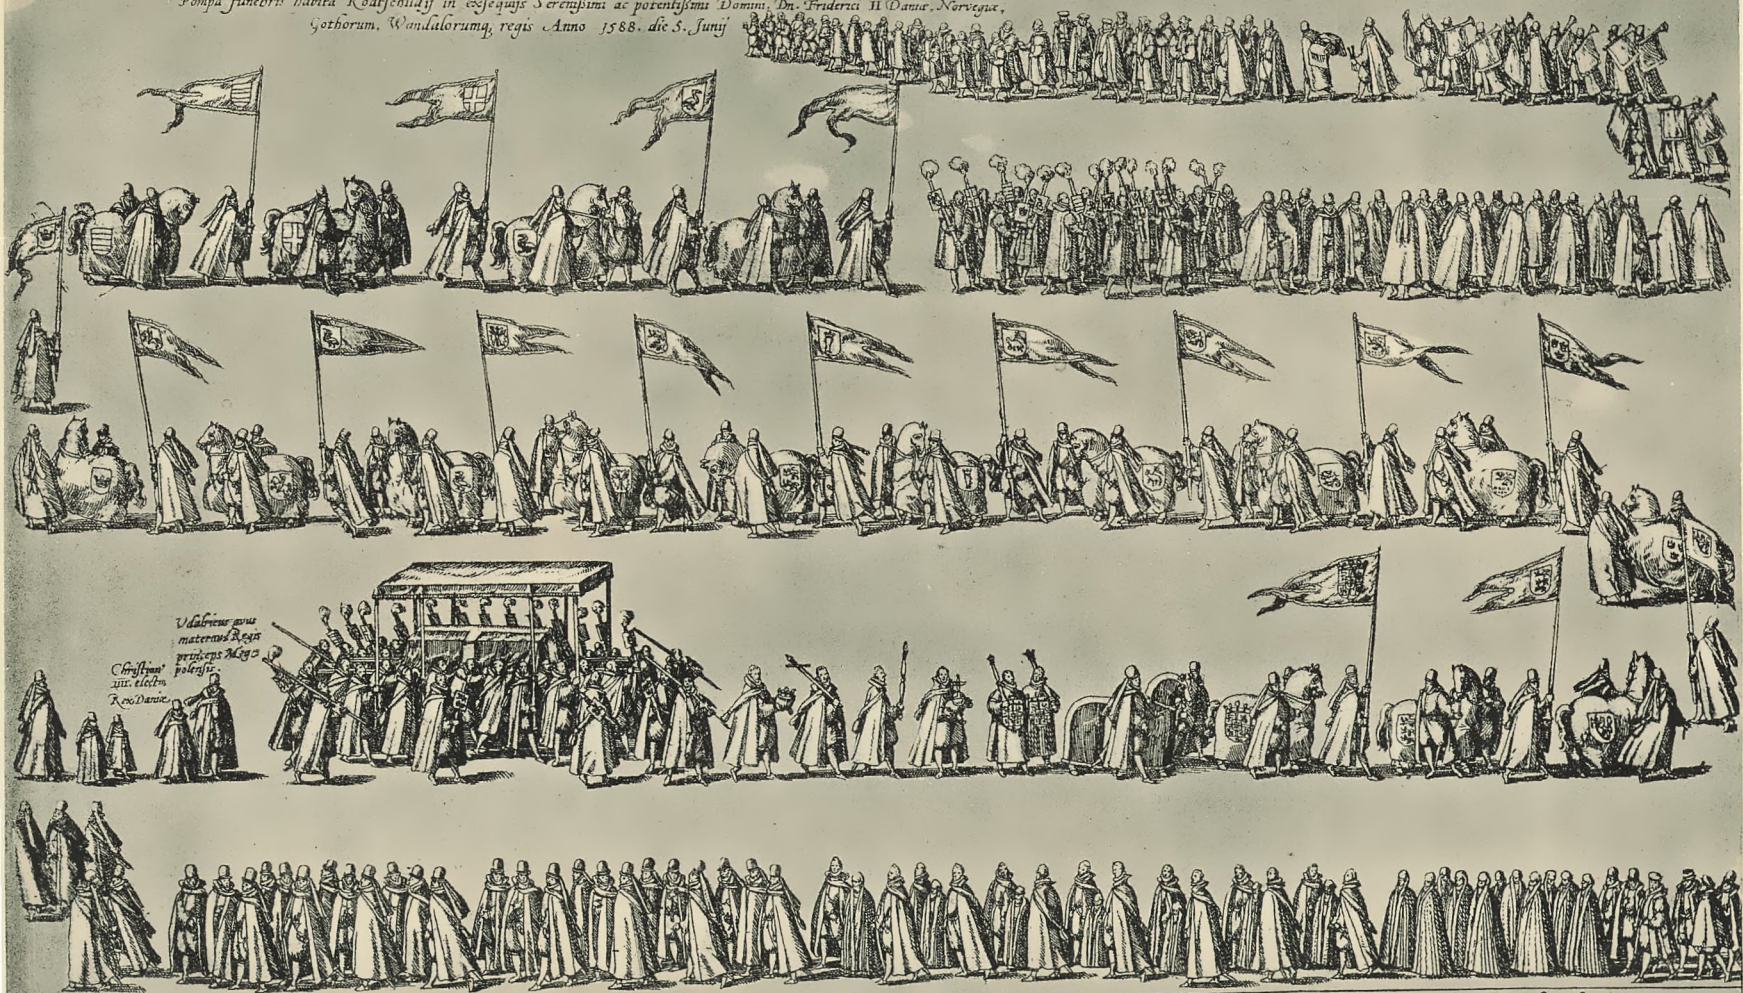 Pompa funebris habita Roatschildij in exsequijs Serenissimi ac potentissimi Domini, Dn. Friderici II Daniæ, Norvegiæ,
Gothorum, Wandalorumq; regis Anno 1588. die 5. Junij
Vdalricus avus
maternus Regis
princeps Mego
polensis.
Christian'
iiii. electus
Rex Daniæ